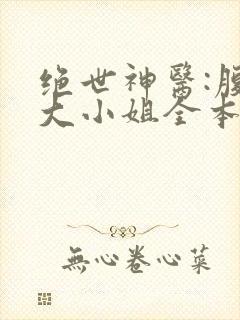 绝世神醫:
大小姐全本
無心卷心菜